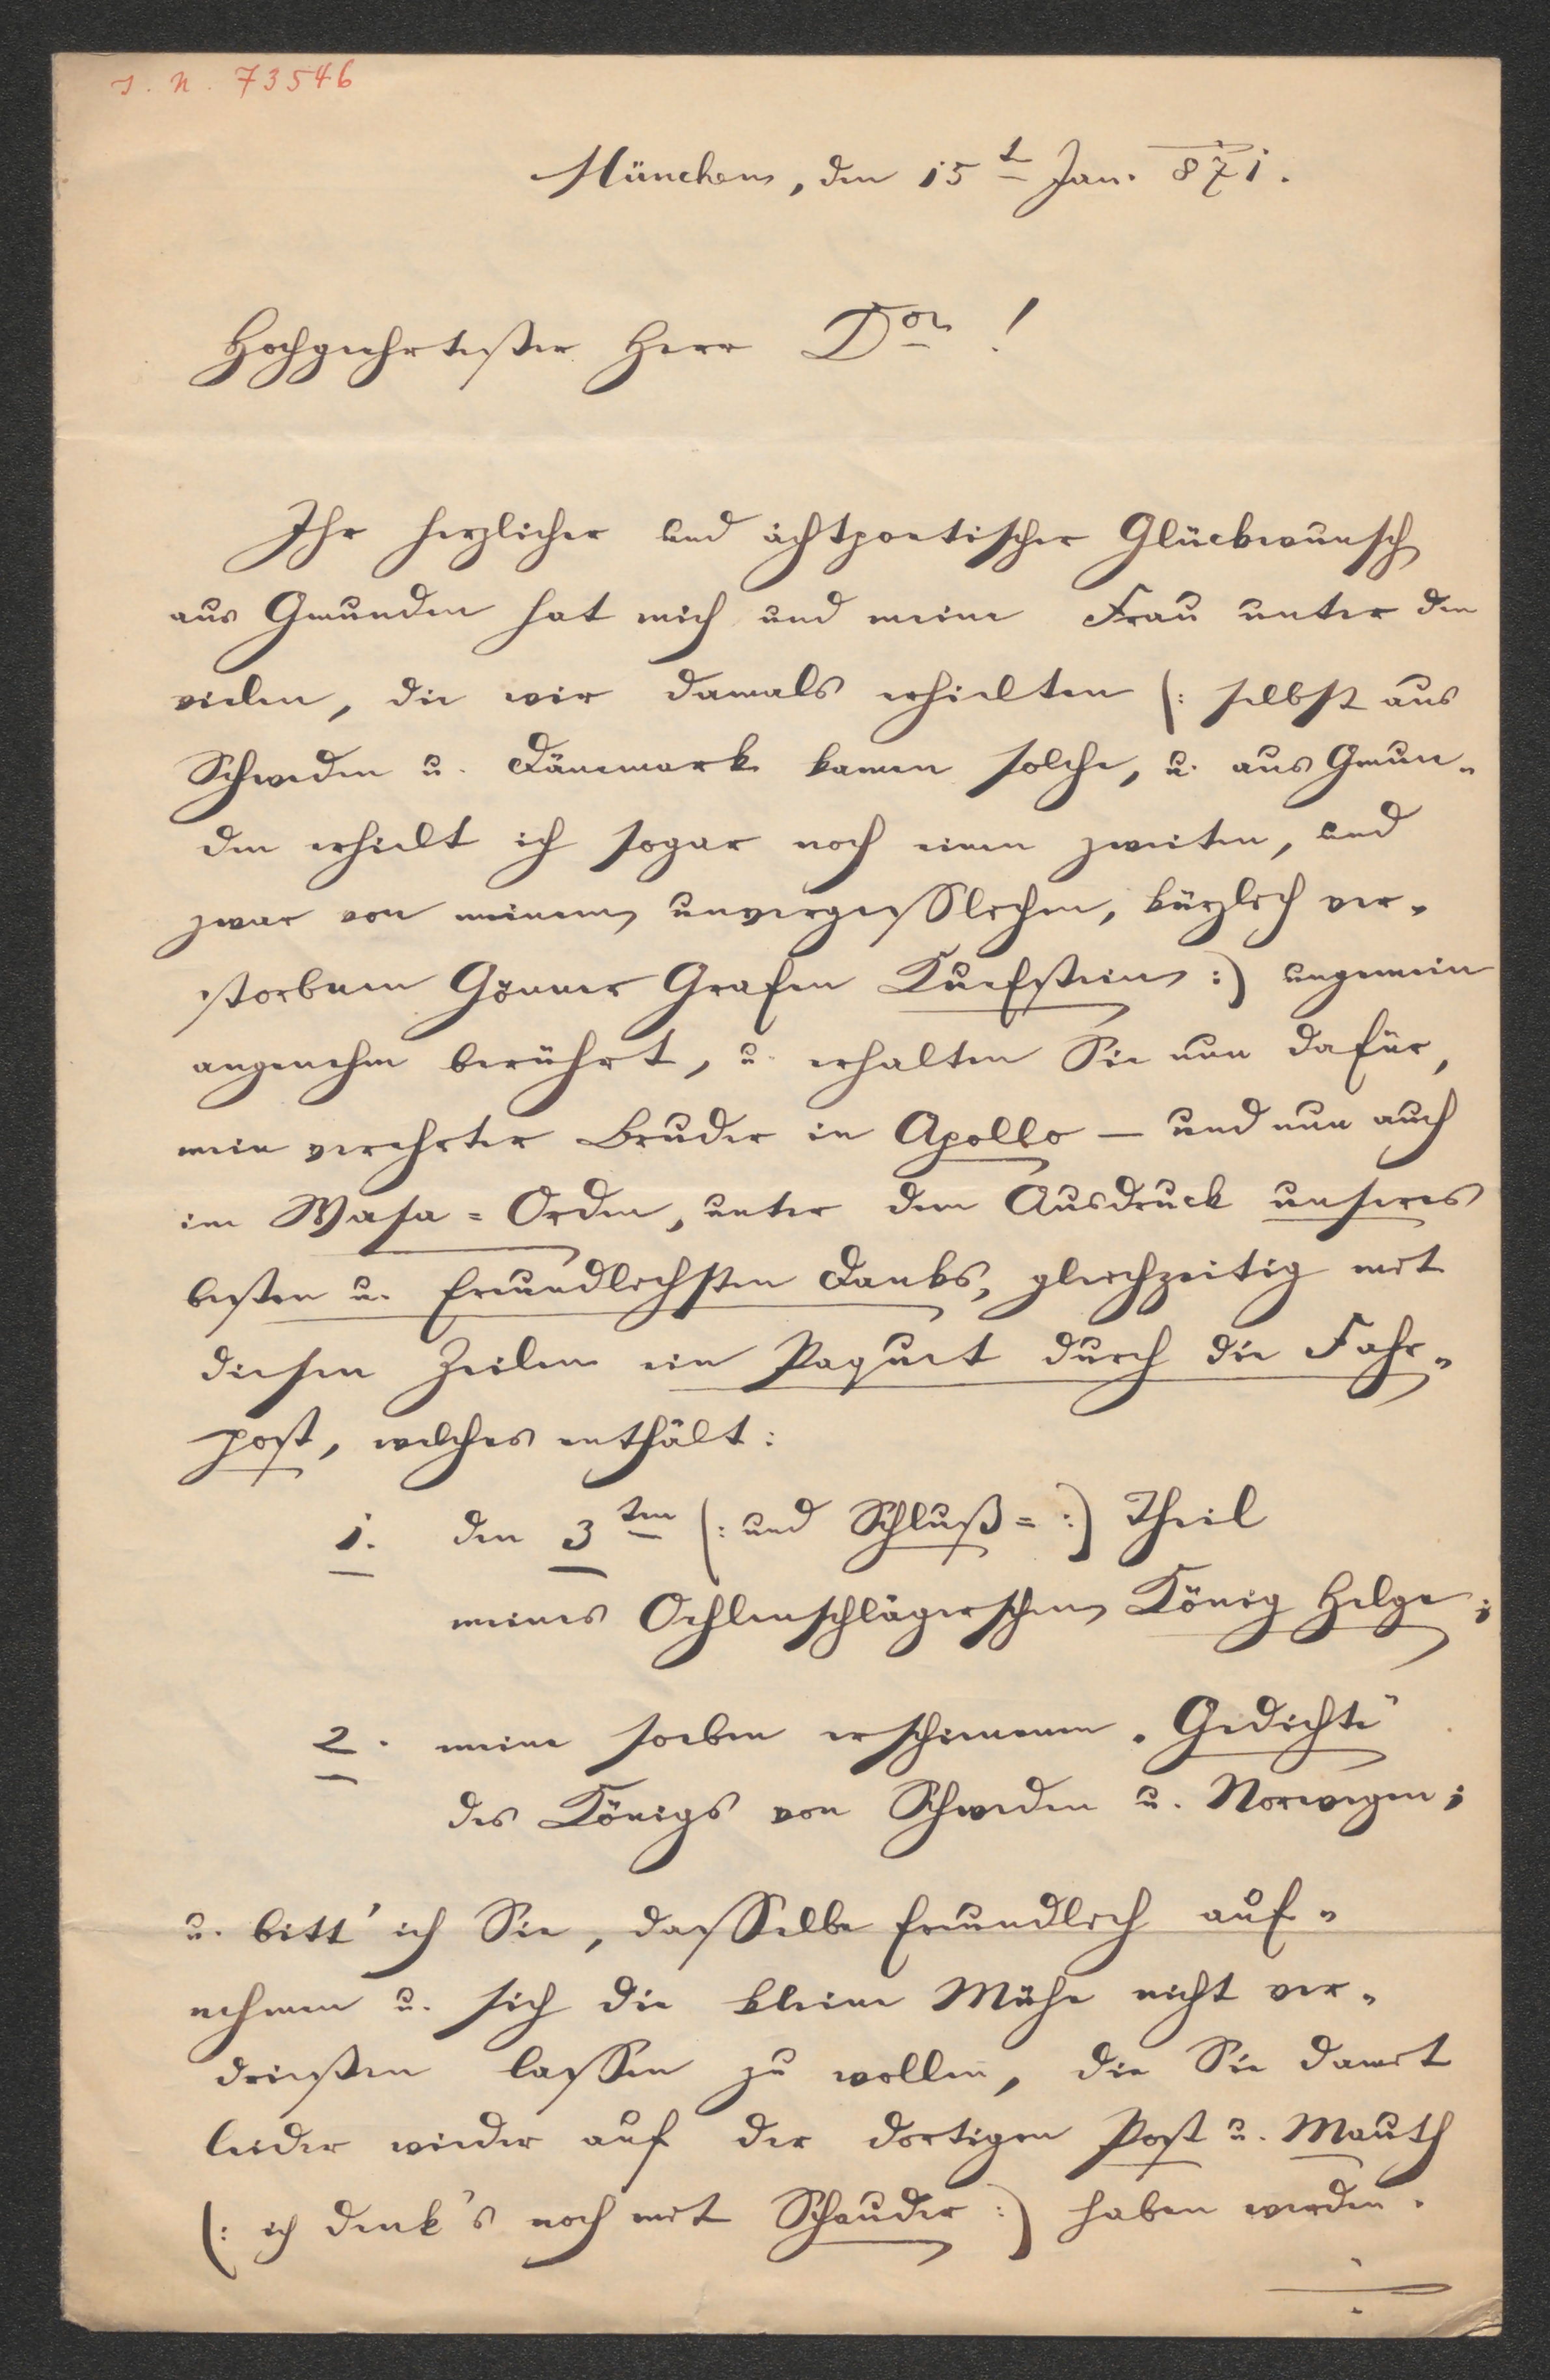 J. N. 73546
München, den 15t Jan. 871.
Hochgeehrtester Herr Dor!
Ihr herzlicher und ächtpoetischer Glückwunsch
aus Gmunden hat mich und meine Frau unter den
vielen, die wir damals erhielten (: selbst aus
Schweden u. Dänemark kamen solche, u. aus Gmun-
den erhielt ich sogar noch einen zweiten, und
zwar von meinem unvergesslichen, kürzlich ver-
storbnen Gönner Grafen Kuefstein :) ungemein
angenehm berührt, u. erhalten Sie nun dafür,
mein verehrter Bruder in Apollo — und nun auch
im Wasa-Orden, unter dem Ausdruck unseres
besten u. freundlichsten Danks, gleichzeitig mit
diesen Zeilen ein Paquet durch die Fahr-
post, welches enthält:
1. den 3ten (: und Schluß= :) Theil
meines Oehlenschlägerschen König Helge;
2. meine soeben erschienenen „Gedichte"
des Königs von Schweden u. Norwegen;
u. bitt' ich Sie, dasselbe freundlich auf-
nehmen u. sich die kleine Mühe nicht ver-
drießen lassen zu wollen, die Sie damit
leider wieder auf der dortigen Post u. Mauth
(: ich denk's noch mit Schauder :) haben werden.